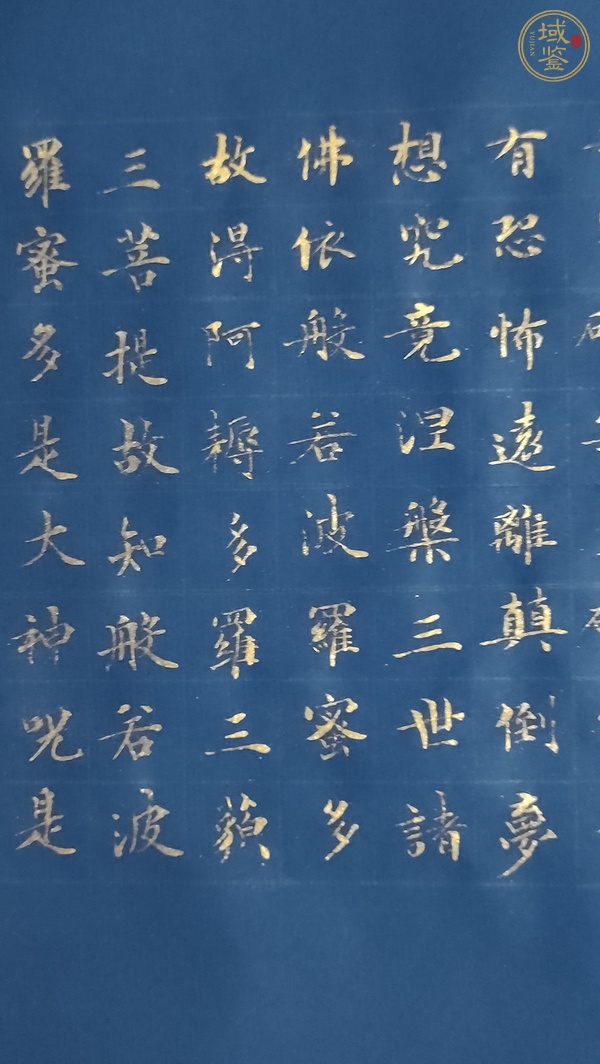 有恐怖遠離顛倒夢
想究竟涅槃三世諸
佛依般若波羅蜜多
故得阿耨多羅三藐
三菩提故知般若波
羅蜜多是大神呪是
域鉴
YUJIAN